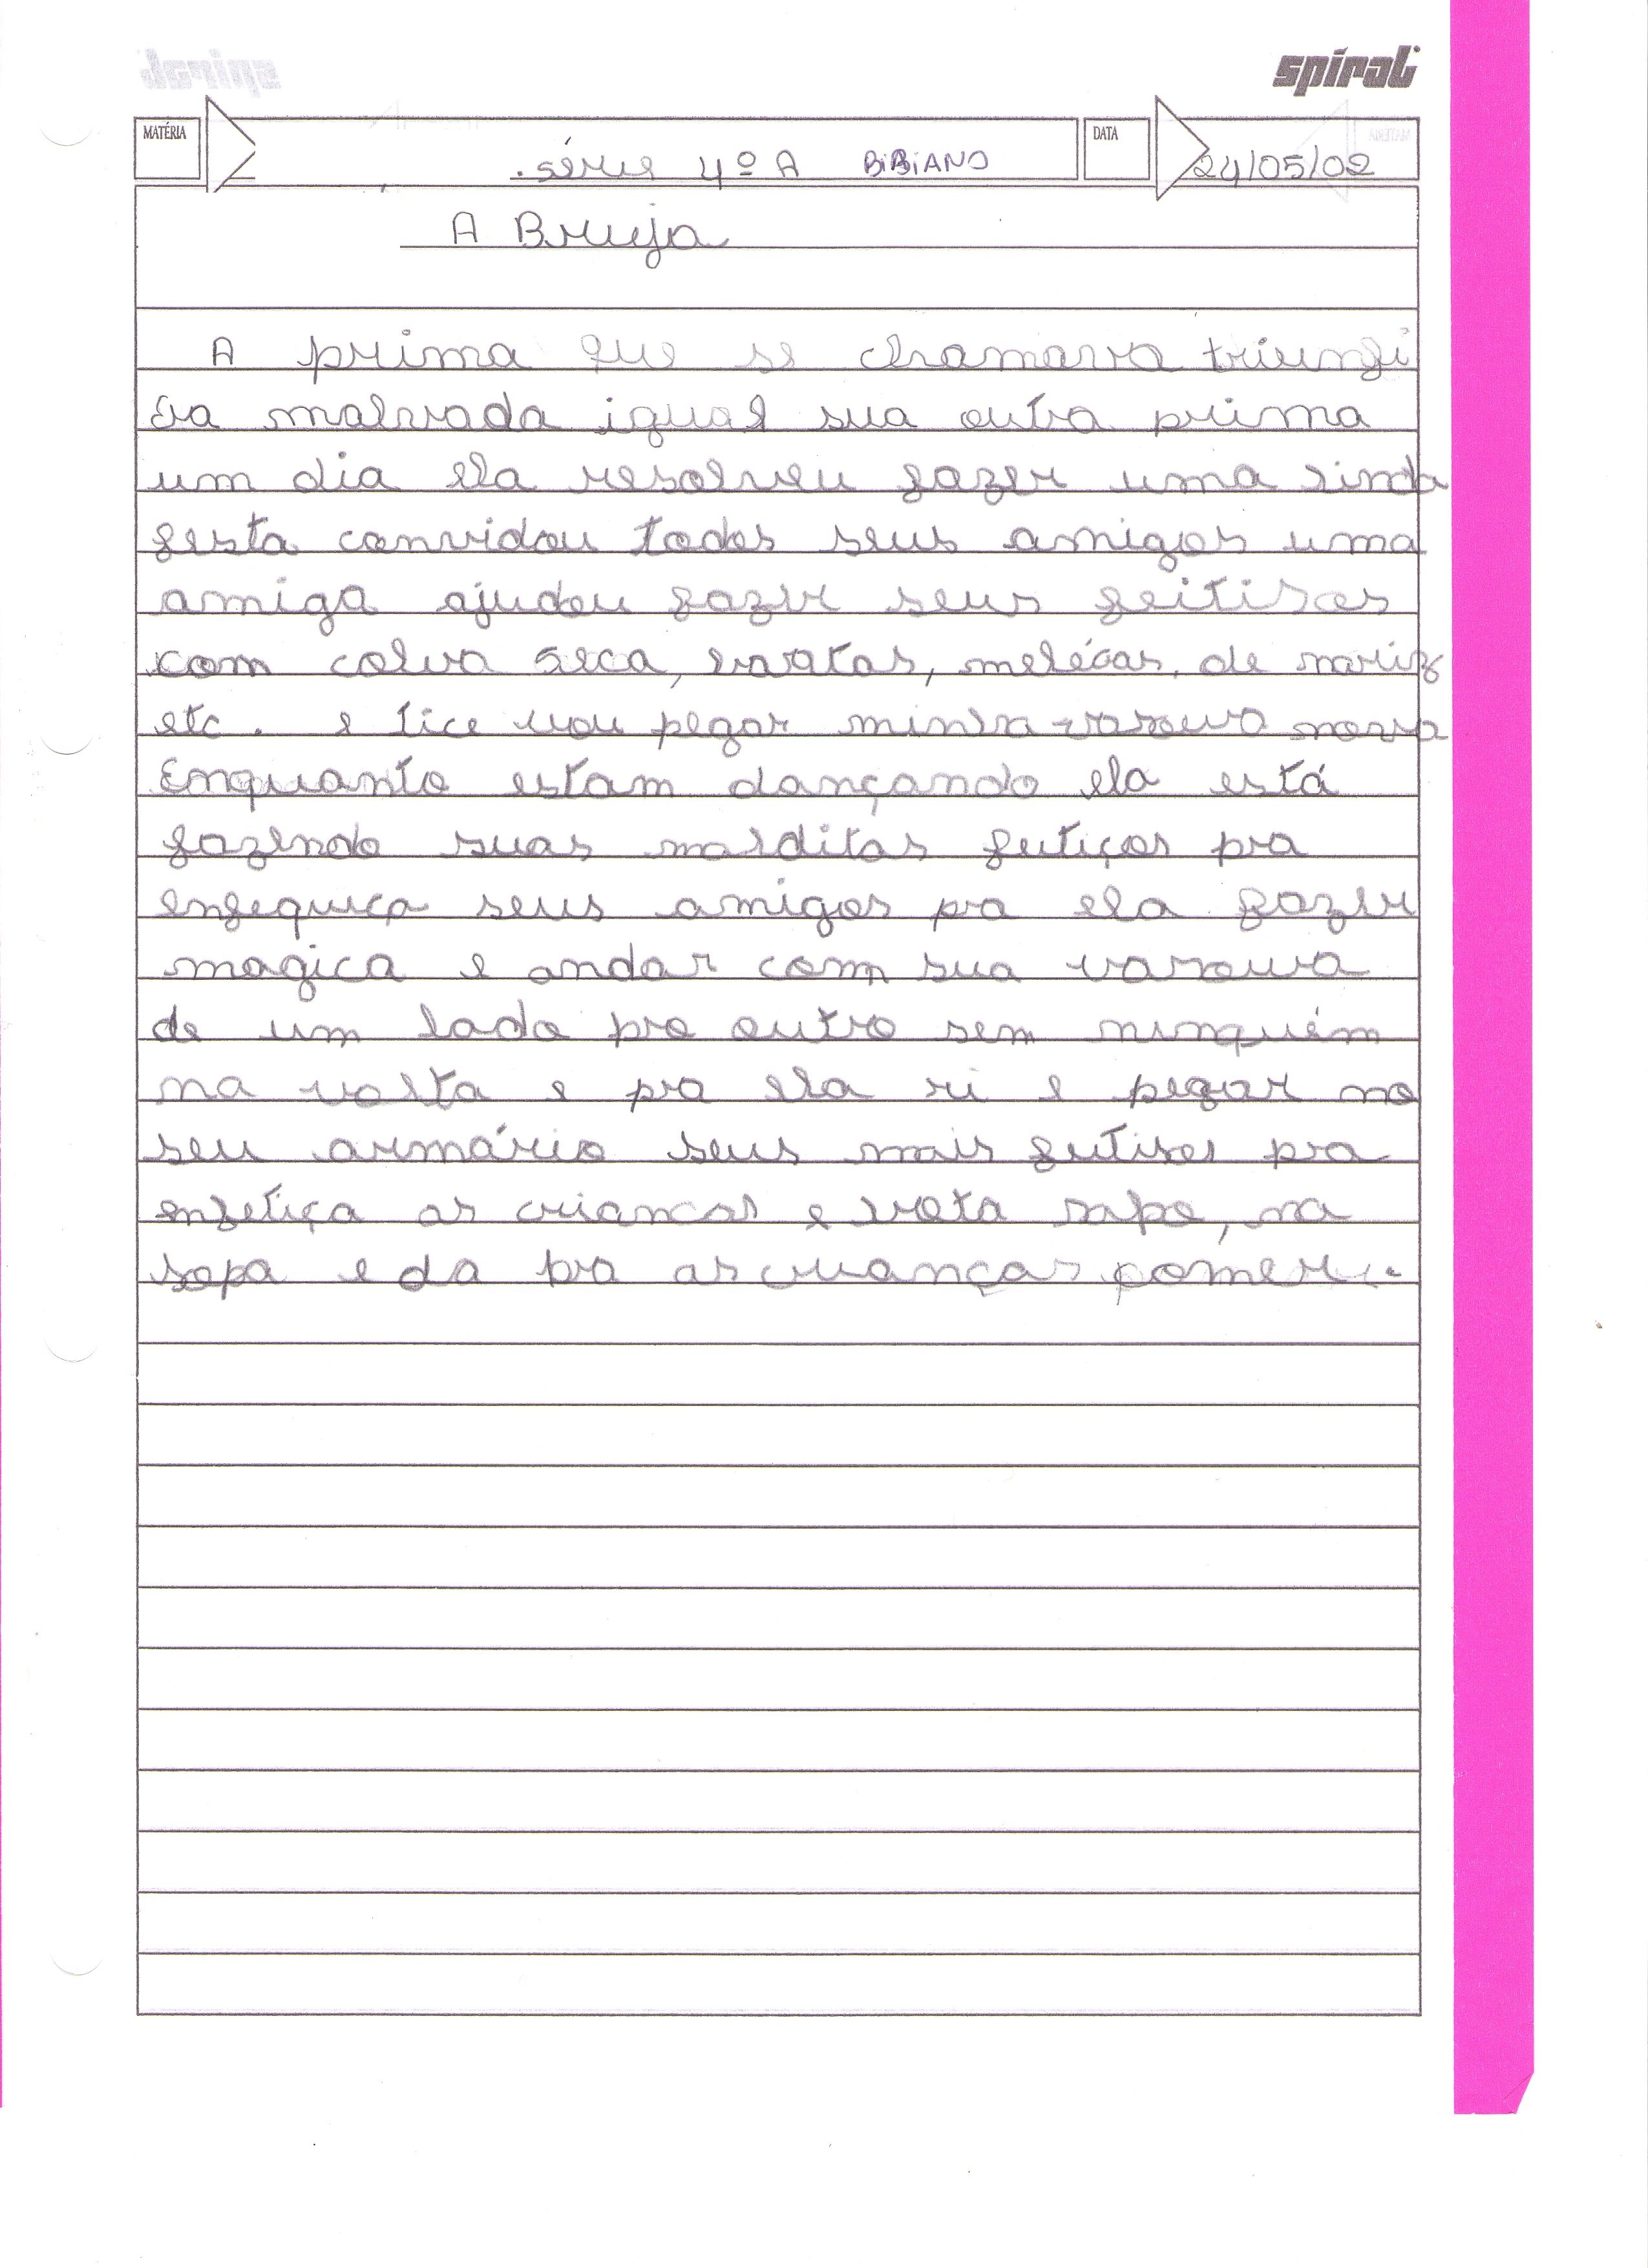 spiral
MATÉRIA
série 4º A BiBiANO
DATA
24/05/02
A Bruja
A prima que se chamava triunfi
Era malvada igual sua outra prima
um dia ela resolveu fazer uma linda
festa convidou todos seus amigos uma
amiga ajudou fazer seus feitisos
com colva seca, baratas, melécas, de nariz
etc. e tice vou pegar minha vasoura nova
Enquanto estam dançando ela está
fazendo suas malditas feitiços pra
enfequiça seus amigos pra ela fazer
magica e andar com sua vasoura
de um lado pro outro sem ninquém
na volta e pra ela ri e pegar no
seu armário seus mais feitisos pra
enfetiça as criancas e vota sapo, na
sopa e da pra as crianças comer.